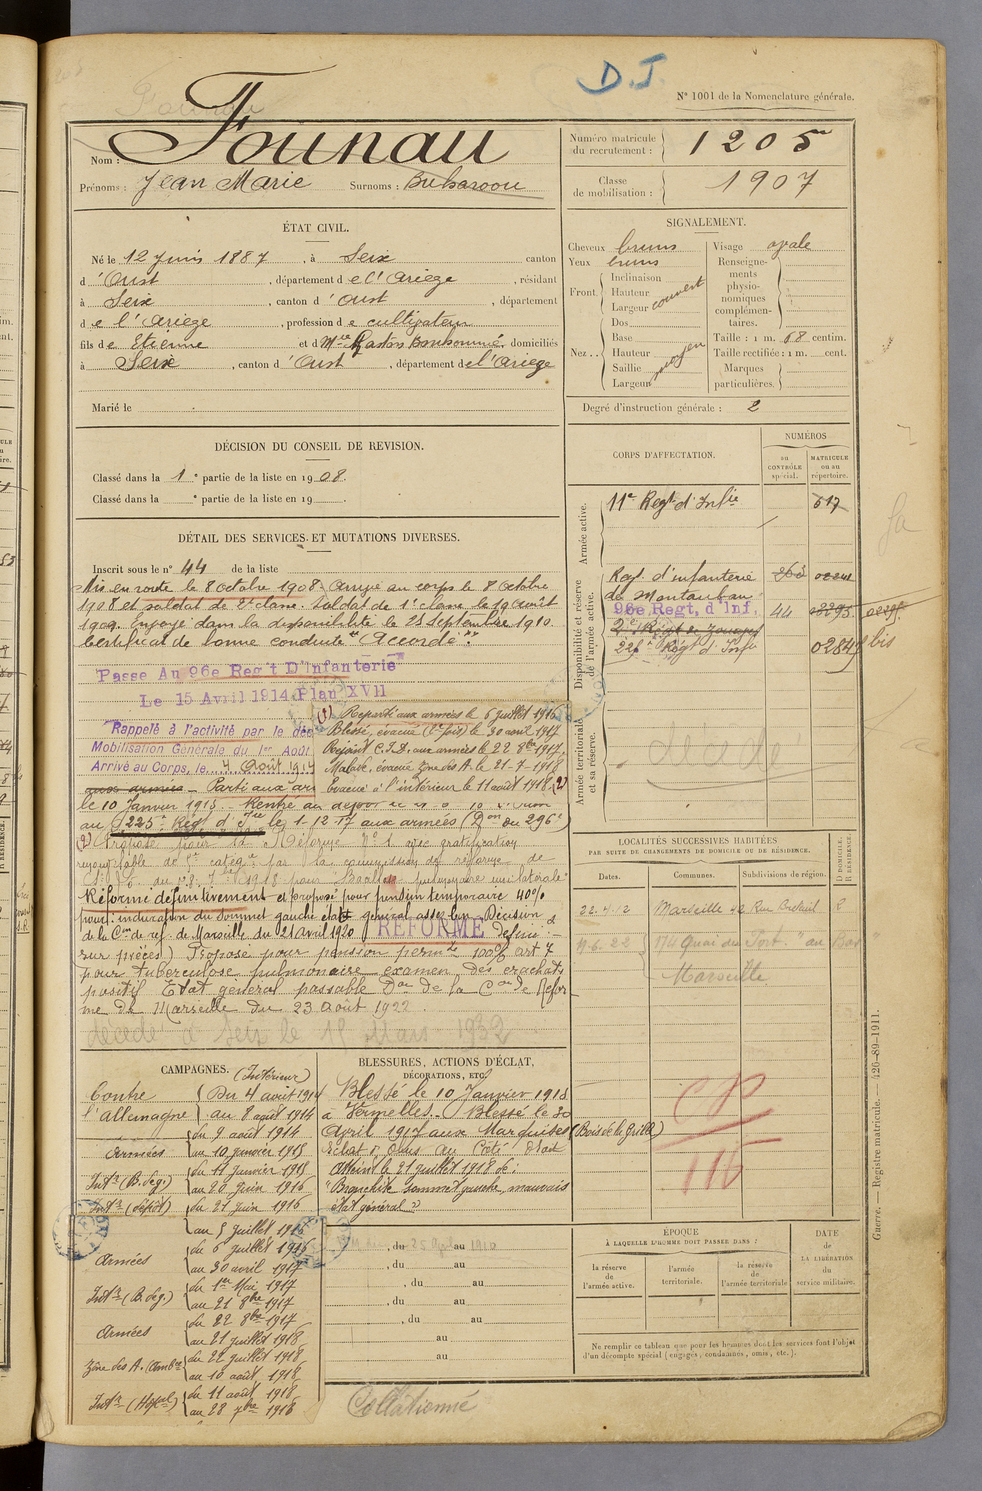 D.J.
N° 1001 de la Nomenclature générale.
Nom : Founau
Prénoms : Jean Marie Surnoms :
Numéro matricule du recrutement : 1205
Classe de mobilisation : 1907
ÉTAT CIVIL.
Né le 12 juin 1887, à Seix canton
d'Oust, département de l'Ariège, résidant
à Seix, canton d'Oust, département
de l'Ariège, profession de cultivateur
fils de Etienne et d domiciliés
à Seix, canton d'Oust, département de l'Ariège
Marié le
SIGNALEMENT.
Cheveux bruns
Yeux bruns
Front. Inclinaison
Hauteur
Largeur couvert
Nez.. Dos
Base
Hauteur moyen
Saillie
Largeur
Visage ovale
Renseignements physionomiques complémentaires.
Taille : 1 m. 68 centim.
Taille rectifiée : 1 m. cent.
Marques particulières.
Degré d'instruction générale : 2
DÉCISION DU CONSEIL DE REVISION.
Classé dans la 1e partie de la liste en 1908.
Classé dans la e partie de la liste en 19
CORPS D'AFFECTATION.
NUMÉROS
au CONTRÔLE spécial.
MATRICULE ou au répertoire.
Armée active.
11e Regt d'Infie 617
Disponibilité et réserve de l'armée active.
Regt. d'infanterie 263
de Montauban
96e Regt, d'Inf. 44
2e Régt de Zouaves
225e Régt d'Infie
bis
Armée territoriale et sa réserve.
décédé
DÉTAIL DES SERVICES ET MUTATIONS DIVERSES.
Inscrit sous le n° 44 de la liste
Mis en route le 8 octobre 1908. Arrivé au corps le 8 octobre
1908 et soldat de 2e classe. Soldat de 1e classe le 19 août
1909. Envoyé dans la disponibilité le 25 Septembre 1910.
Certificat de bonne conduite "Accordé".
Passe Au 96e Reg't D'Infanterie
Le 15 Avril 1914 Plan XVII
Rappelé à l'activité par le dé
Mobilisation Générale du 1er Août
Arrivé au Corps, le 4 Août 1914
aux armées - Parti aux ar
le 10 Janvier 1915. - Rentré au dépôt
(1) Reparti aux armées le 6 juillet 1916
Blessé, évacué (2e fois) le 30 avril 1917
Rejoint C.I.D. aux armées le 22 8bre 1917.
Malade, évacué Zone des A. le 21-7-1918
Evacué à l'intérieur le 11 août 1918 (2)
au 225e Régt d'Infie le 1-12-17 aux armées (Don du 296e)
(2) Proposé pour la Réforme N° 1 avec gratification
renouvelable de 5e catége par la commission de réforme de
Réformé définitivement et proposé pour pension temporaire 40%
pour : induration du sommet gauche état général assez bon - Décision
de la Con de réf. de Marseille du 21 Avril 1920 REFORMÉ Définie -
sur pièces) Proposé pour pension permte 100% art 7
pour tuberculose pulmonaire examen des crachats
positif Etat général passable Don de la Con de Réfor
me de Marseille du 23 Août 1922.
décédé à Seix le
LOCALITÉS SUCCESSIVES HABITÉES
PAR SUITE DE CHANGEMENTS DE DOMICILE OU DE RÉSIDENCE.
Dates. Communes. Subdivisions de région. D DOMICILE. R RÉSIDENCE.
22.4.12 Marseille 42 Rue
19.6.22 174 Quai du Port. "au Bas"
Marseille
CP
116
CAMPAGNES.
(Intérieur)
Contre l'Allemagne
Du 4 août 1914
au 8 août 1914
Armées
du 9 août 1914
au 10 janvier 1915
Intr (B. de g.)
du 11 janvier 1915
au 20 juin 1916
Intr (dépôt)
du 21 juin 1916
au 5 juillet 1916
Armées
du 6 juillet 1916
au 30 avril 1917
Intr (B. de g.)
du 1er Mai 1917
au 21 8bre 1917
Armées
du 22 8bre 1917
au 21 juillet 1918
Zone des A. Ambce
du 22 juillet 1918
au 10 août 1918
Intr (Hôpl)
du 11 août 1918
au 28 7bre 1918
BLESSURES, ACTIONS D'ÉCLAT, DÉCORATIONS, ETC.
Blessé le 10 Janvier 1915
à Vermelles. Blessé le 30
Avril 1917 aux Marquises (Bois de la Grille)
Eclat d'obus au Côté droit
Atteint le 21 juillet 1918 de :
"Bronchite sommet gauche, mauvais
état général"
, du au
, du au
, du au
, du au
, du au
au
au
ÉPOQUE
À LAQUELLE L'HOMME DOIT PASSER DANS :
la réserve de l'armée active.
l'armée territoriale.
la réserve de l'armée territoriale
DATE de LA LIBÉRATION du service militaire.
Ne remplir ce tableau que pour les hommes dont les services font l'objet
d'un décompte spécial (engagés, condamnés, omis, etc.).
Collationné
Guerre. — Registre matricule. — 426-89-1911.